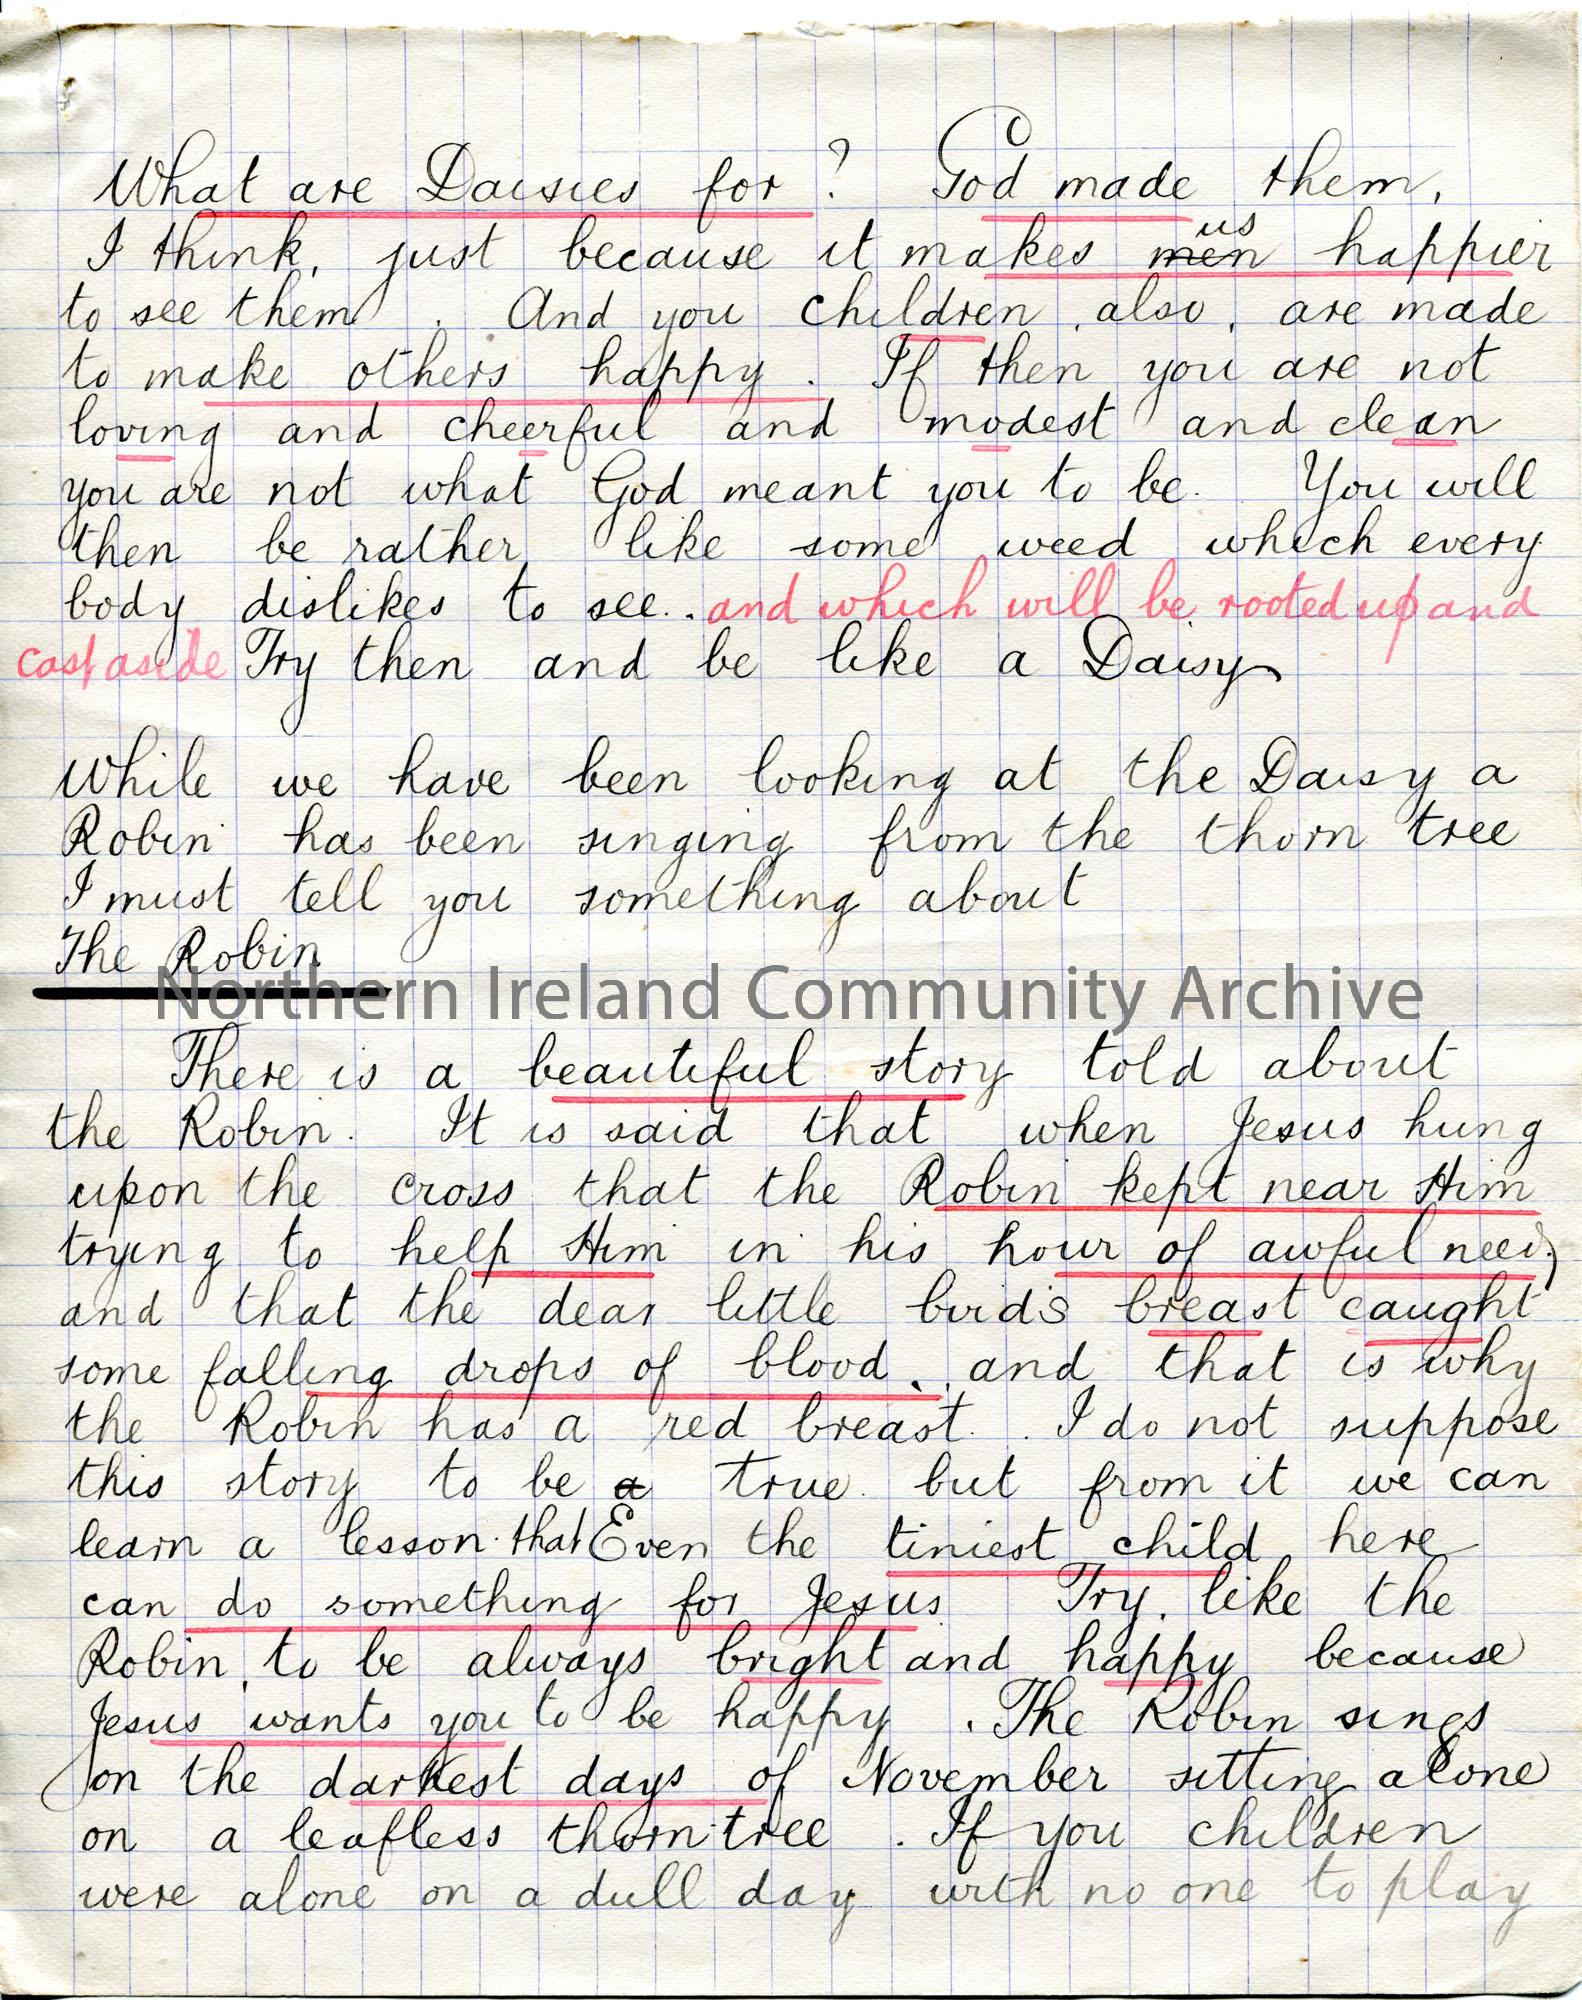 What are Daisies for? God made them,
I think, just because it makes men us happier
to see them. And you children, also, are made
to make others happy. If then you are not
loving and cheerful and modest and clean
you are not what God meant you to be. You will
then be rather like some weed which every
body dislikes to see. and which will be rooted up and
cast aside Try then and be like a Daisy
While we have been looking at the Daisy a
Robin has been singing from the thorn tree
I must tell you something about
The Robin
Northern Ireland Community Archive
There is a beautiful story told about
the Robin. It is said that when Jesus hung
upon the cross that the Robin kept near Him
trying to help Him in his hour of awful need,
and that the dear little bird's breast caught
some falling drops of blood, and that is why
the Robin has a red breast. I do not suppose
this story to be a true but from it we can
learn a lesson that Even the tiniest child here
can do something for Jesus Try, like the
Robin, to be always bright and happy because
Jesus wants you to be happy. The Robin sings
on the darkest days of November sitting alone
on a leafless thorn-tree. If you children
were alone on a dull day with no one to play